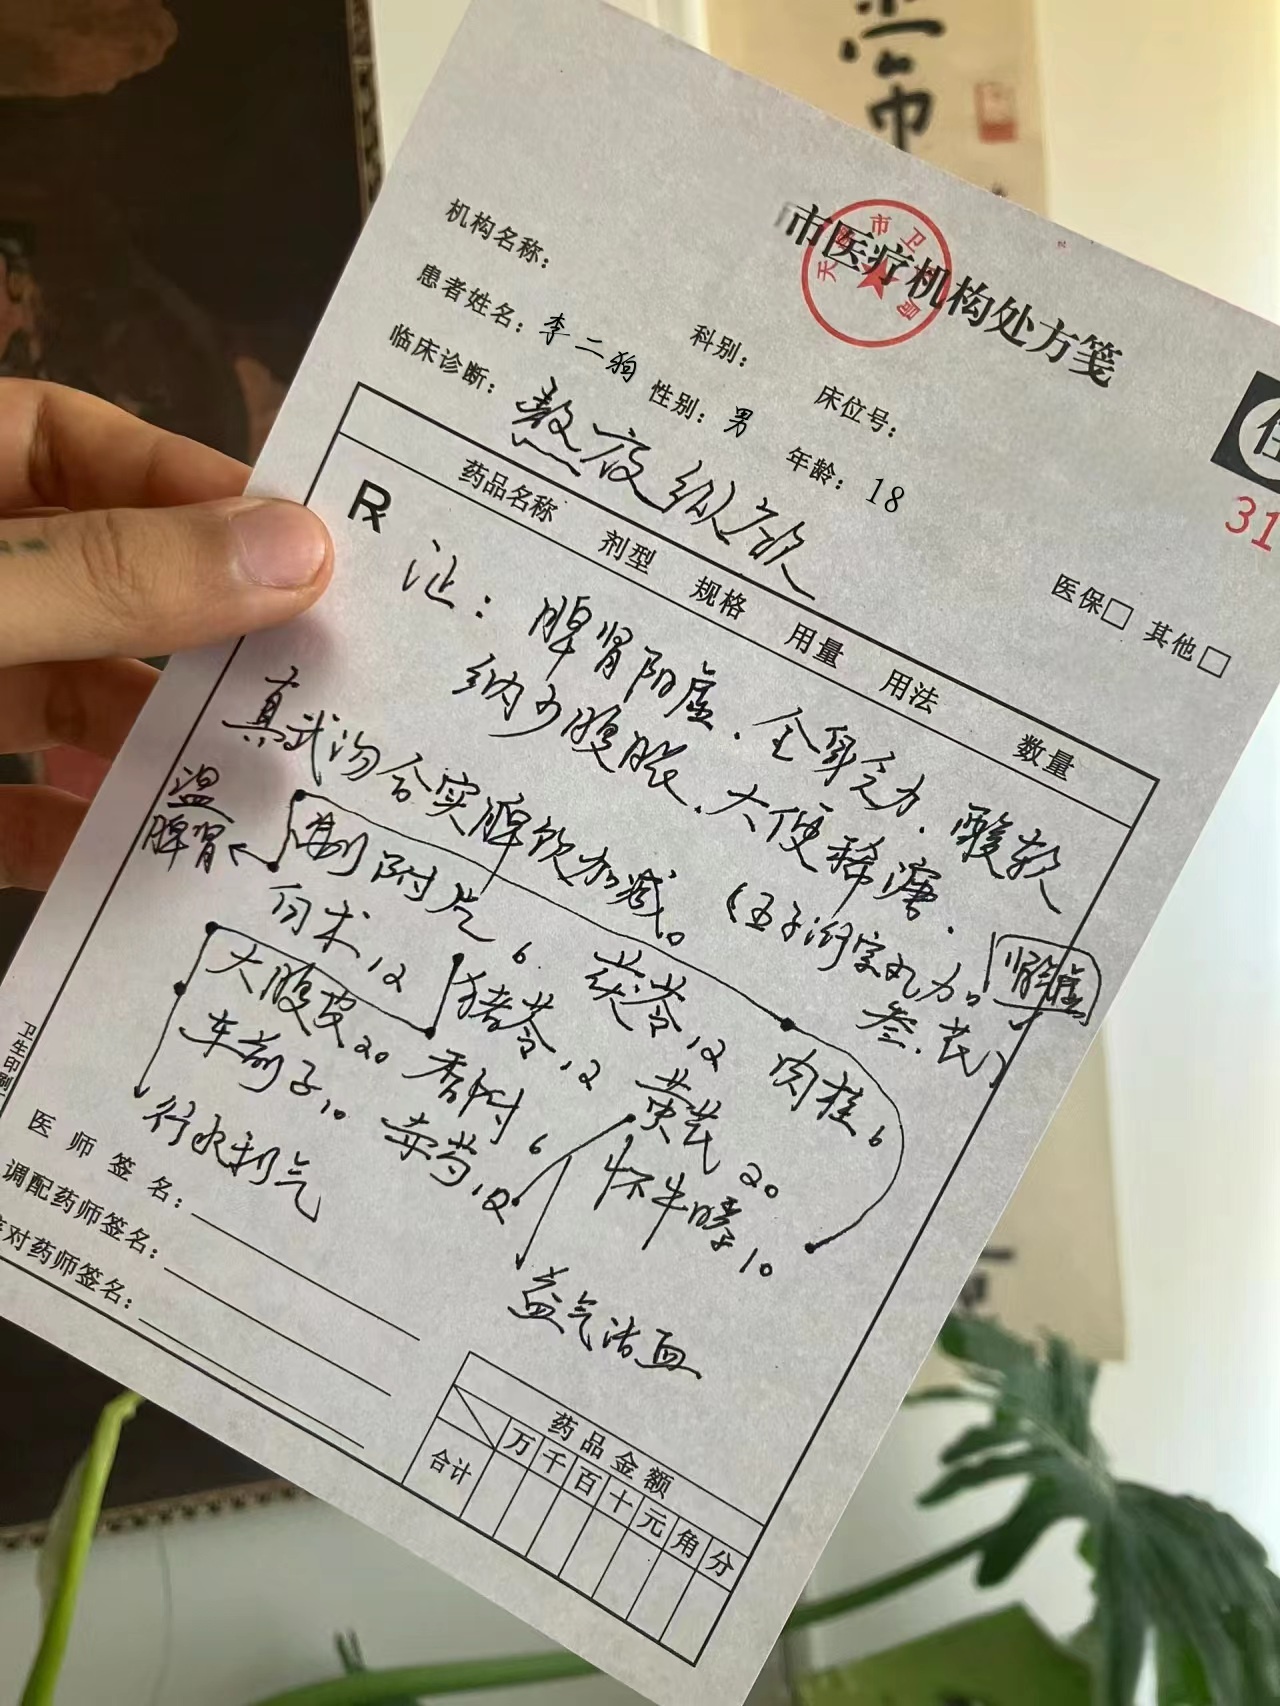 市医疗机构处方笺
机构名称：
科别：
床位号：
患者姓名：李二狗 性别：男 年龄：18
临床诊断：熬夜纵欲
医保□ 其他□
31
药品名称 剂型 规格 用量 用法 数量
R
证：脾肾阳虚．全身乏力．酸软
纳少腹胀．大便稀溏．肾虚
真武汤合实脾饮加减。（五子衍宗丸加。参．芪）
温脾肾
制附片6 茯苓12 肉桂6
白术12 猪苓12 黄芪20
大腹皮20 香附6 怀牛膝10
车前子10 赤芍12
行水利气
益气活血
卫生印刷
医师签名：
调配药师签名：
对药师签名：
药品金额
合计 万 千 百 十 元 角 分